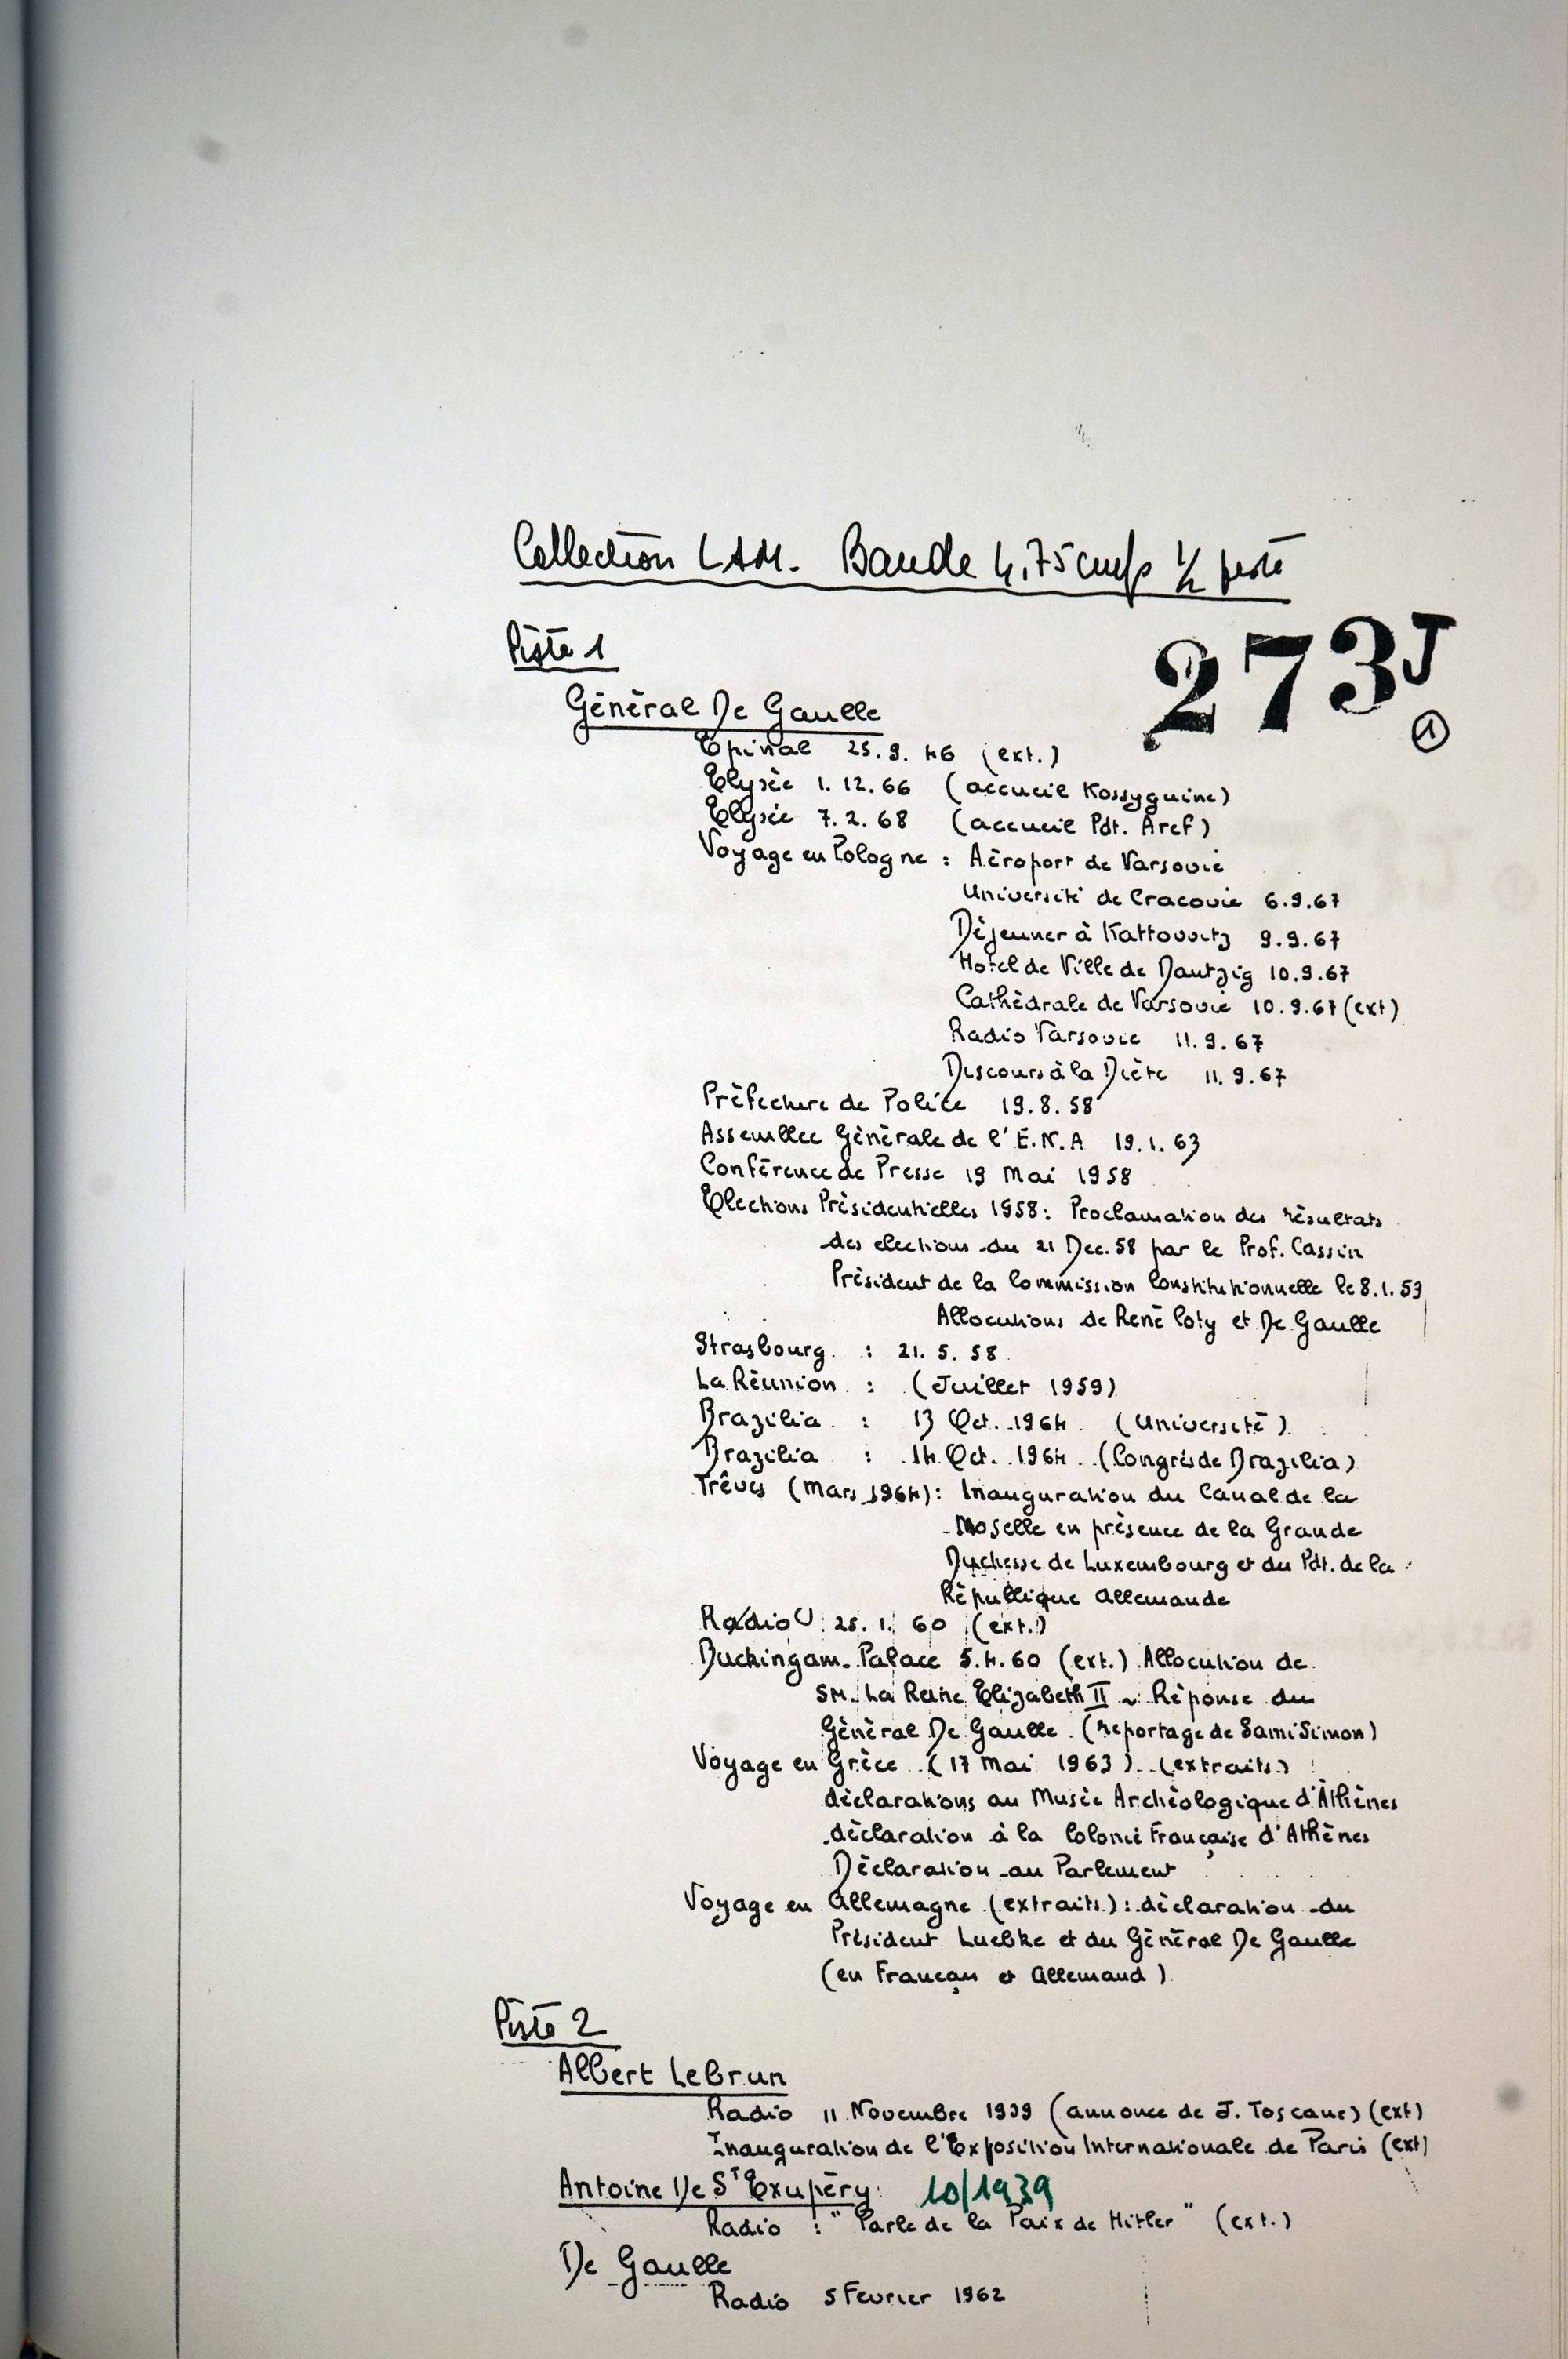 Collection LAM. Bande 4,75 cm/s ½ piste
Piste 1
273J
1
Général De Gaulle
Epinal 25.9.46 (ext.)
Elysée 1.12.66 (accueil Kossyguine)
Elysée 7.2.68 (accueil Pdt. Aref)
Voyage en Pologne : Aéroport de Varsovie
Université de Cracovie 6.9.67
Déjeuner à Kattowitz 9.9.67
Hotel de Ville de Dantzig 10.9.67
Cathédrale de Varsovie 10.9.67 (ext)
Radio Varsovie 11.9.67
Discours à la Diète 11.9.67
Préfecture de Police 19.8.58
Assemblee Générale de l'E.N.A 19.1.63
Conférence de Presse 19 Mai 1958
Elections Présidentielles 1958: Proclamation des résultats
des elections du 21 Dec. 58 par le Prof. Cassin
Président de la Commission Constitutionnelle le 8.1.59
Allocutions de René Coty et De Gaulle
Strasbourg : 21.5.58
La Réunion : (Juillet 1959)
Brazilia : 13 Oct. 1964 (Université)
Brazilia : 14 Oct. 1964 (Congrès de Brazilia)
Trêves (Mars 1964): Inauguration du Canal de la
Moselle en présence de la Grande
Duchesse de Luxembourg et du Pdt. de la
République Allemande
Radio : 25.1.60 (ext.)
Buckingam-Palace 5.4.60 (ext.) Allocution de
SM. La Reine Elizabeth II ~ Réponse du
Général De Gaulle. (reportage de Sami Simon)
Voyage en Grèce (17 Mai 1963) (extraits)
déclarations au Musée Archéologique d'Athènes
déclaration à la Colonie Française d'Athènes
Déclaration au Parlement
Voyage en Allemagne (extraits): déclaration du
Président Luebke et du Général De Gaulle
(en Français et Allemand)
Piste 2
Albert Lebrun
Radio 11 Novembre 1939 (annonce de J. Toscane) (ext)
Inauguration de l'Exposition Internationale de Paris (ext)
Antoine De St Exupéry: 10/1939
Radio : "Parle de la Paix de Hitler" (ext.)
De Gaulle
Radio 5 Fevrier 1962